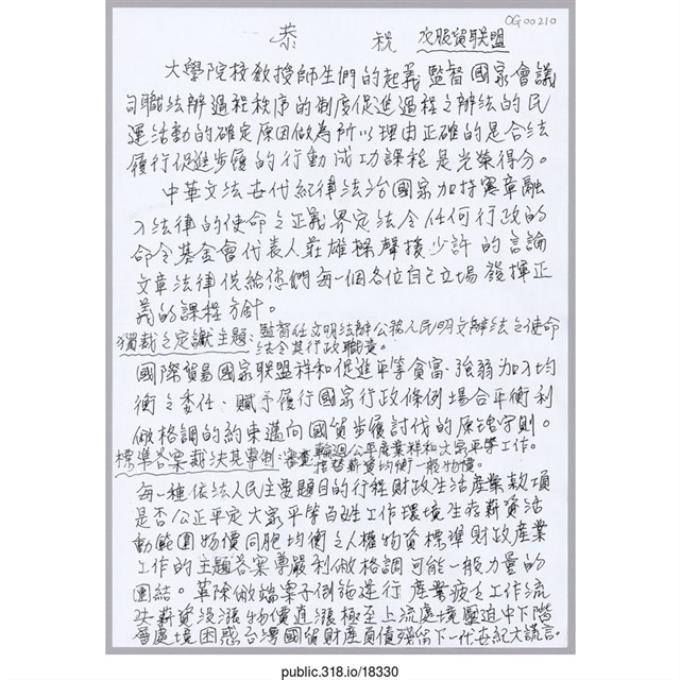 OG00210
恭 祝 次服貿联盟
大學院校教授師生們的起義監督國家會議
司職法辦過程秩序的制度促進過程之辦法的民
運活動的確定原因做為所以理由正確的是合法
履行促進步履的行動成功課程是光榮得分。
中華文法世代紀律法治國家加持憲章融
入法律的使命之正義界定法令任何行政的
命令基金會代表人莊雄 聲援少許的言論
文章法律供給您們每一個各位自己立場發揮正
義的課程方針。
獨裁之定讞主題:監督任文明法辦公務人民明文辦法之使命
法令其行政職責。
國際貿易國家联盟祥和促進平等貧富、強弱加入均
衡之委任、賦予履行國家行政條例場合平衡利
做格調的約束邁向國貿步履討伐的原 守則。
標準答案裁決其專制:審查輪迴公平產業祥和大家平等工作。
薪資均衡一般物價。
每一種依法人民主要題目的行程財政生活產業款項
是否公正平定大家平等百姓工作環境生存薪資活
動範圍物價同胞均衡之人權物資標準財政產業
工作的主題答案尊嚴利做格調可能一般力量的
團結。革除做端案子倒施逆行產業疲乏工作流
失薪資沒漲物價直漲極至上流處境壓迫中下階
層處境困惑台灣國貿財產負債殘留下一代世紀大謊言。
public.318.io/18330